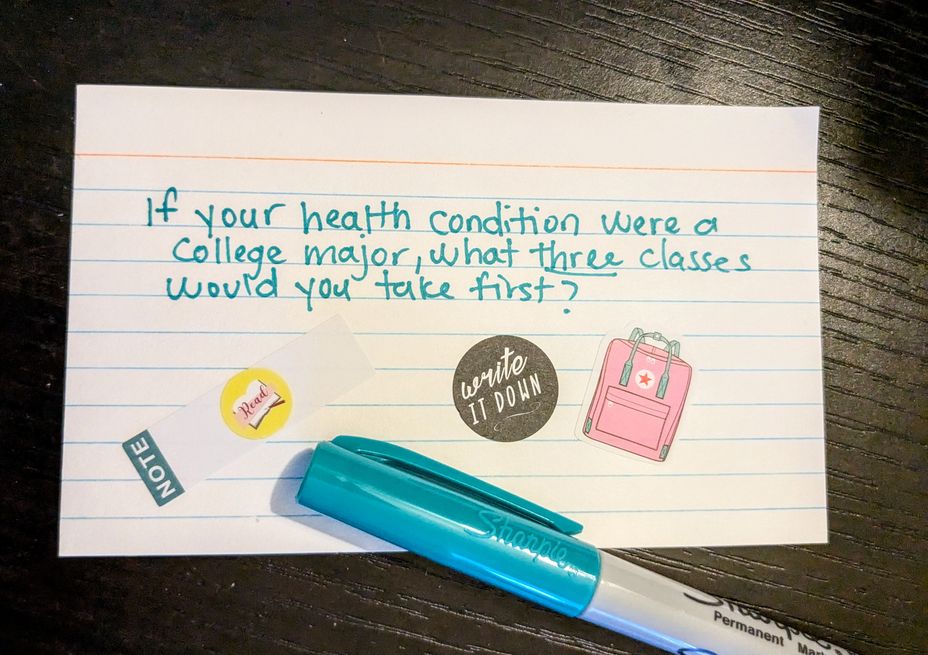 If your health condition were a
college major, what three classes
would you take first?
NOTE
Read
write
IT DOWN
Sharpie
Sharpie
Permanent